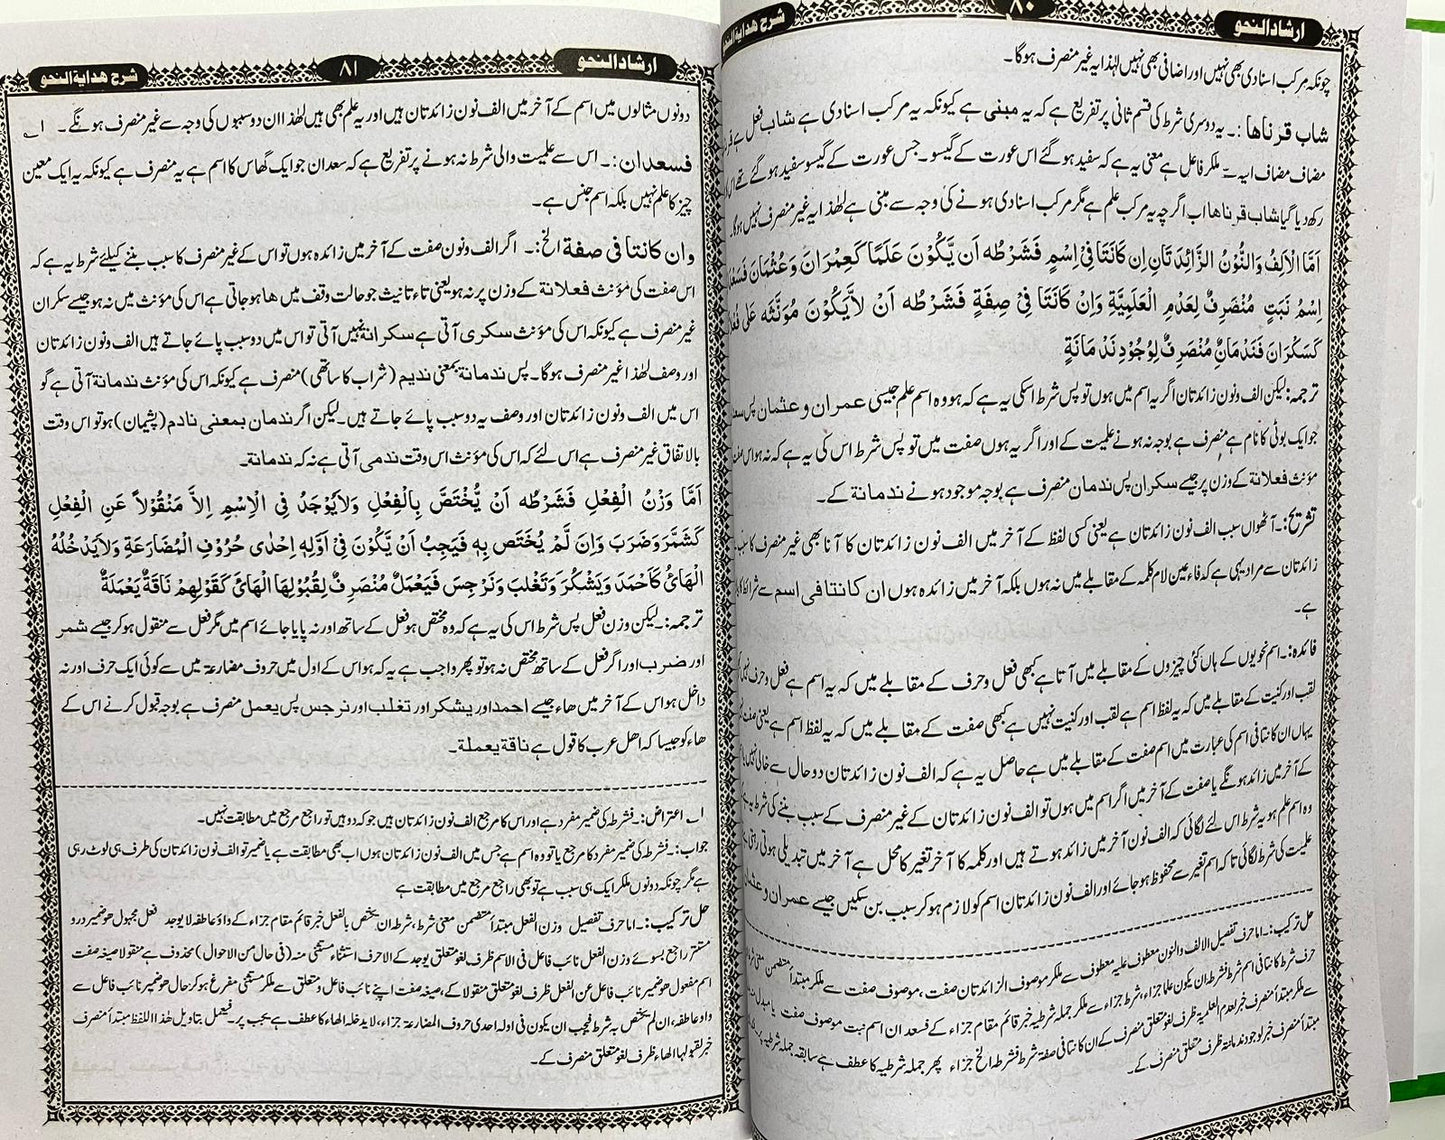 ارشاد النحو
۸۰
شرح هداية النحو
چونکہ مرکب اسنادی بھی نہیں اور اضافی بھی نہیں لہٰذا یہ غیر منصرف ہوگا۔
شاب قرناها :۔ یہ دوسری شرط کی قسم ثانی پر تفریع ہے کہ یہ مبنی ہے کیونکہ یہ مرکب اسنادی ہے شاب فعل ہے
مضاف مضاف الیہ سے ملکر فاعل ہے معنی یہ ہے کہ سفید ہو گئے اس عورت کے گیسو۔ جس عورت کے گیسو سفید ہو گئے تھے
رکھ دیا گیا شاب قرناها اب اگرچہ یہ مرکب علم ہے مگر مرکب اسنادی ہونے کی وجہ سے مبنی ہے لھٰذا یہ غیر منصرف نہیں ہوگا۔
اَمَّا الْاَلِفُ وَالنُّوْنُ الزَّائِدَتَانِ اِنْ كَانَتَا فِيْ اِسْمٍ فَشَرْطُه اَنْ يَّكُوْنَ عَلَمًا كَعِمْرَانَ وَعُثْمَانَ
اِسْمُ نَبَتٍ مُنْصَرِفٌ لِعَدْمِ الْعَلَمِيَّةِ وَاِنْ كَانَتَا فِيْ صِفَةٍ فَشَرْطُه اَنْ لَّايَكُوْنَ مُوَنَّثُه عَلٰى
كَسَكْرَانَ فَنَدْمَانٌ مُنْصَرِفٌ لِوُجُوْدِ نَدْمَانَةٍ
ترجمہ: لیکن الف و نون زائدتان اگر یہ اسم میں ہوں تو پس شرط اسکی یہ ہے کہ ہو وہ اسم علم جیسی عمران و عثمان پس
جو ایک بوٹی کا نام ہے منصرف ہے بوجہ نہ ہونے علمیت کے اور اگر یہ ہوں صفت میں تو پس شرط اس کی یہ ہے کہ نہ ہو اس
مؤنث فعلانة کے وزن پر جیسے سکران پس ندمان منصرف ہے بوجہ موجود ہونے ندمانة کے۔
تشریح:۔ آٹھواں سبب الف نون زائدتان ہے یعنی کسی لفظ کے آخر میں الف نون زائدتان کا آنا بھی غیر منصرف کا سبب
زائدتان سے مراد یہی ہے کہ فاء عین لام کلمہ کے مقابلے میں نہ ہوں بلکہ آخر میں زائدہ ہوں ان کانتا فی اسم سے شرائط
ہے۔
فائدہ:۔ اسم نحویوں کے ہاں کئی چیزوں کے مقابلے میں آتا ہے کبھی فعل و حرف کے مقابلے میں کہ یہ اسم ہے فعل و حرف نہیں
لقب اور کنیت کے مقابلے میں کہ یہ لفظ اسم ہے لقب اور کنیت نہیں ہے کبھی صفت کے مقابلے میں کہ یہ لفظ اسم ہے یعنی صفت
یہاں ان کانتا فی اسم کی عبارت میں اسم صفت کے مقابلے میں ہے حاصل یہ ہے کہ الف نون زائدتان دو حال سے خالی نہیں
کے آخر میں زائد ہونگے یا صفت کے آخر میں اگر اسم میں ہوں تو الف نون زائدتان کے غیر منصرف کے سبب بننے کی شرط یہ
وہ اسم علم ہو یہ شرط اس لئے لگائی کہ الف نون آخر میں زائد ہوتے ہیں اور کلمہ کا آخر تغیر کا محل ہے آخر میں تبدیلی ہوتی رہتی
علمیت کی شرط لگائی تاکہ اسم تغیر سے محفوظ ہو جائے اور الف نون زائدتان اسم کو لازم ہو کر سبب بن سکیں جیسے عمران و
حل ترکیب:۔ اما حرف تفصیل الالف والنون معطوف علیہ معطوف سے ملکر موصوف الزائدتان صفت، موصوف صفت سے ملکر مبتدأ متضمن معنی
حرف شرط کانتا فی اسم شرط فشرطہ ان یکون علما جزاء، شرط جزاء سے ملکر جملہ شرطیہ خبر قائم مقام جزاء کے فسعد ان اسم نبت موصوف صفت
سے ملکر مبتدأ منصرف خبر لعدم العلمیة ظرف لغو متعلق منصرف کے ان کانتا فی صفة شرط فشرطہ الخ جزاء پھر جملہ شرطیہ کا عطف ہے سابقہ جملہ شرطیہ پر
مبتدأ منصرف خبر لوجود ندمانة ظرف متعلق منصرف کے۔
ارشاد النحو
۸۱
شرح هداية النحو
دونوں مثالوں میں اسم کے آخر میں الف نون زائدتان ہیں اور یہ علم بھی ہیں لھٰذا ان دو سببوں کی وجہ سے غیر منصرف ہونگے۔ ۱؎
فسعدان :۔ اس سے علمیت والی شرط نہ ہونے پر تفریع ہے کہ سعدان جو ایک گھاس کا اسم ہے یہ منصرف ہے کیونکہ یہ ایک معین
چیز کا علم نہیں بلکہ اسم جنس ہے۔
وان کانتا فی صفة الخ :۔ اگر الف و نون صفت کے آخر میں زائدہ ہوں تو اس کے غیر منصرف کا سبب بننے کیلئے شرط یہ ہے کہ
اس صفت کی مؤنث فعلانة کے وزن پر نہ ہو یعنی تاء تانیث جو حالت وقف میں ھا ہو جاتی ہے اس کی مؤنث میں نہ ہو جیسے سکران
غیر منصرف ہے کیونکہ اس کی مؤنث سکری آتی ہے سکرانة نہیں آتی تو اس میں دو سبب پائے جاتے ہیں الف و نون زائدتان
اور وصف لھٰذا غیر منصرف ہوگا۔ پس ندمانة بمعنی ندیم (شراب کا ساتھی) منصرف ہے کیونکہ اس کی مؤنث ندمانة آتی ہے گو
اس میں الف و نون زائدتان اور وصف یہ دو سبب پائے جاتے ہیں۔ لیکن اگر ندمان بمعنی نادم (پشیمان) ہو تو اس وقت
بالاتفاق غیر منصرف ہے اس لئے کہ اس کی مؤنث اس وقت ندمی آتی ہے نہ کہ ندمانة۔
اَمَّا وَزْنُ الْفِعْلِ فَشَرْطُه اَنْ يُّخْتَصَّ بِالْفِعْلِ وَلَايُوْجَدُ فِي الْاِسْمِ اِلاَّ مَنْقُوْلاً عَنِ الْفِعْلِ
كَشَمَّرَ وَضَرَبَ وَاِنْ لَّمْ يُخْتَصَّ بِهٖ فَيَجِبُ اَنْ يَّكُوْنَ فِيْ اَوَّلِهٖ اِحْدٰى حُرُوْفِ الْمُضَارَعَةِ وَلاَيَدْخُلُهُ
الْهَائُ كَاَحْمَدَ وَيَشْكُرَ وَتَغْلِبَ وَنَرْجِسَ فَيَعْمَلٌ مُنْصَرِفٌ لِقُبُوْلِهَا الْهَائَ كَقَوْلِهِمْ نَاقَةٌ يَعْمَلَةٌ
ترجمہ:۔ لیکن وزن فعل پس شرط اس کی یہ ہے کہ وہ مختص ہو فعل کے ساتھ اور نہ پایا جائے اسم میں مگر فعل سے منقول ہو کر جیسے شمر
اور ضرب اور اگر فعل کے ساتھ مختص نہ ہو تو پھر واجب ہے یہ کہ ہو اس کے اول میں حروف مضارعة میں سے کوئی ایک حرف اور نہ
داخل ہو اس کے آخر میں ھاء جیسے احمد اور یشکر اور تغلب اور نرجس پس یعمل منصرف ہے بوجہ قبول کرنے اس کے
ھاء کو جیسا کہ اھل عرب کا قول ہے ناقة یعملة۔
۱؎ اعتراض:۔ فشرطہ کی ضمیر مفرد ہے اور اس کا مرجع الف نون زائدتان ہیں جو کہ دو ہیں تو راجع مرجع میں مطابقت نہیں۔
جواب:۔ فشرطہ کی ضمیر مفرد کا مرجع یا تو وہ اسم ہے جس میں الف نون زائدتان ہوں اب بھی مطابقت ہے یا ضمیر تو الف نون زائدتان کی طرف ہی لوٹ رہی
ہے مگر چونکہ دونوں ملکر ایک ہی سبب ہے تو بھی راجع مرجع میں مطابقت ہے
حل ترکیب:۔ اما حرف تفصیل وزن الفعل مبتدأ متضمن معنی شرط، شرطہ ان یختص بالفعل خبر قائم مقام جزاء کے واؤ عاطفہ لا یوجد فعل مجہول ھو ضمیر درو
مستتر راجع بسوئے وزن الفعل نائب فاعل فی الاسم ظرف لغو متعلق یوجد کے الا حرف استثناء مستثنی منہ (فی حال من الاحوال) محذوف ہے منقولا صیغہ صفت
اسم مفعول ھو ضمیر نائب فاعل عن الفعل ظرف لغو متعلق منقولا کے، صیغہ صفت اپنے نائب فاعل و متعلق سے ملکر مستثنی مفرغ ہو کر حال ھو ضمیر نائب فاعل سے
واؤ عاطفہ، ان لم یختص بہ شرط فیجب ان یکون فی اولہ احدی حروف المضارعة جزاء، لا یدخلہ الھاء کا عطف ہے یجب پر۔ فیعمل بتاویل ھذا اللفظ مبتدأ منصرف
خبر لقبولها الھاء ظرف لغو متعلق منصرف کے۔